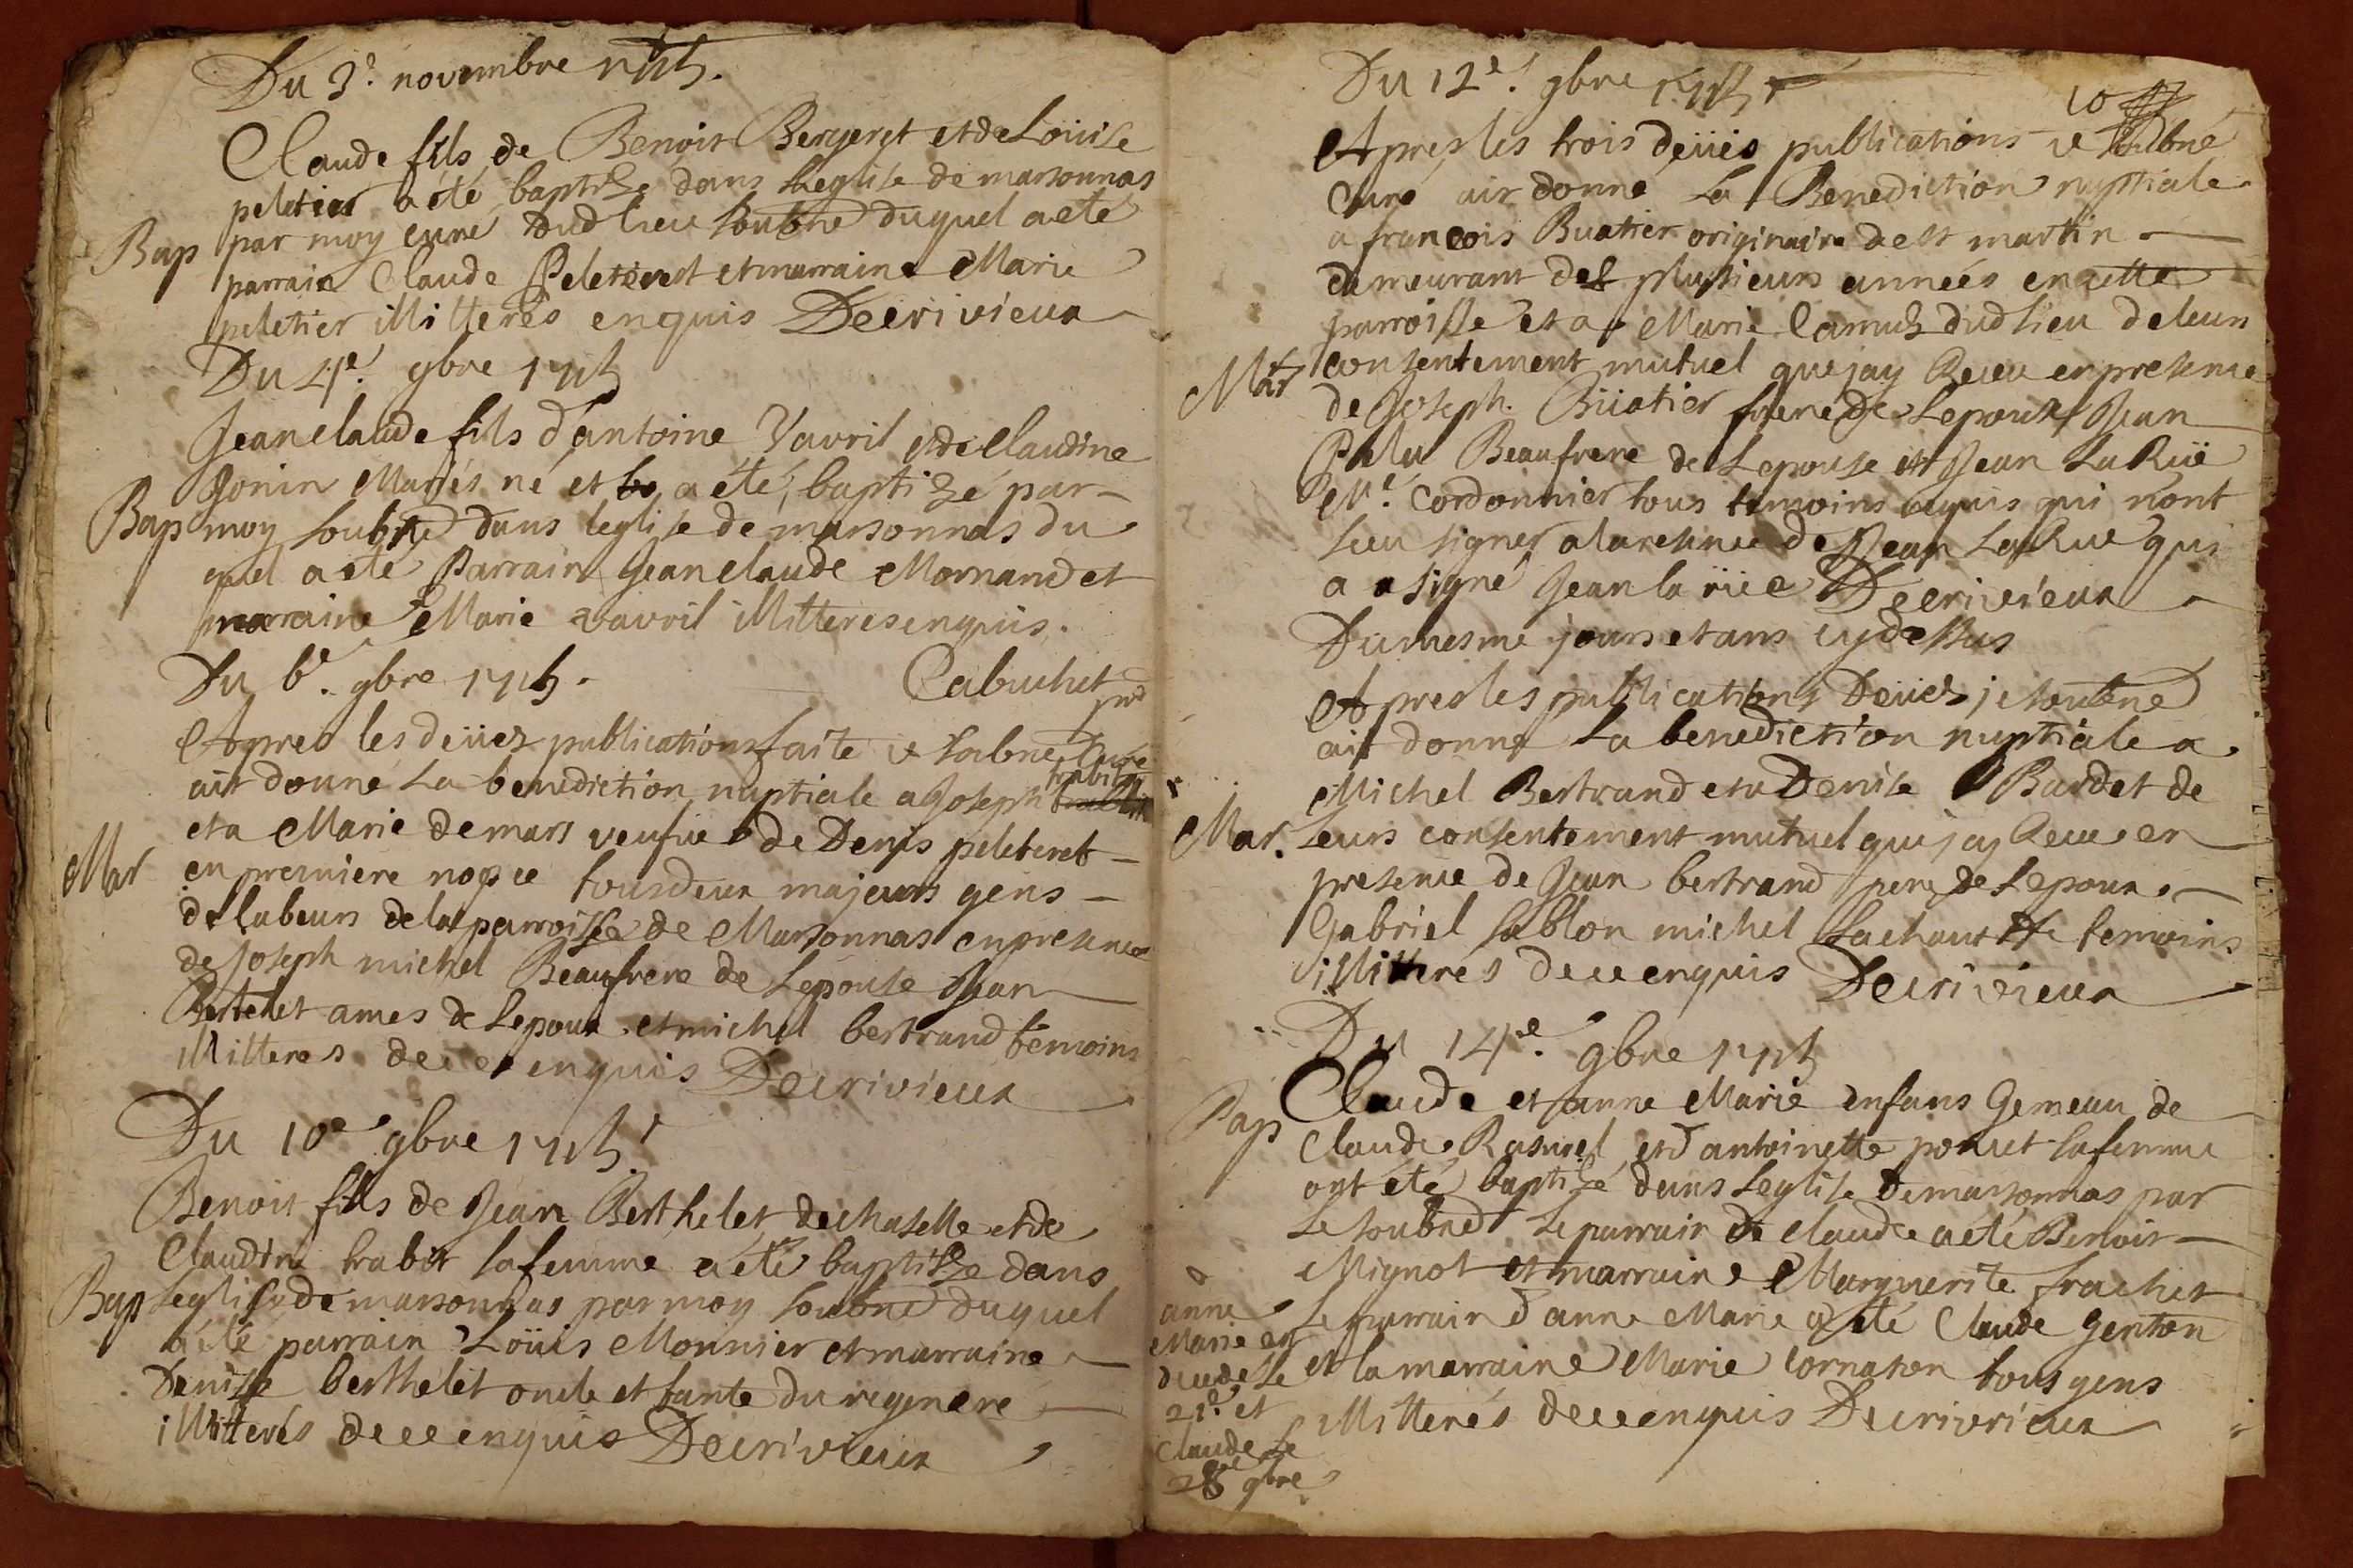 Du 3e. novembre 1715.
Claude fils de Benoit Bergeret et de Loüise
peletier a été baptizé dans Leglise de marsonnas
Bap par moy curé dud lieu soubné duquel a eté
parrain Claude Peleteret et marraine Marie
peletier illitterés enquis Decrivieux
Du 4e. 9bre 1715
Jean claude fils d'antoine Vavril et de claudine
Gonin Mariés né et a été baptizé par
Bap moy soubné dans leglise de marsonnas du
quel a eté Parrain Jean claude Mornand et
marraine Marie vavril illitteres enquis.
Cabuchet
Du 6e. 9bre 1715.
Apres les deües publications faite je soubné Curé
ait donné La benediction nuptiale a Joseph trabit
et a Marie demars veufue de Denis peleteret
Mar en premiere nopce tous deux majeurs gens
de labeurs de la parroisse de Marsonnas en presence
de Joseph michel Beaufrere de Lepouse Jean
Bertelet ames de Lepoux et michel bertrand temoins
illitteres de ce enquis Decrivieux
Du 10e 9bre 1715.
Benoit fils de Jean Berthelet de chaselle et de
Claudine trabit sa femme a été baptizé dans
Bap Leglise de marsonnas par moy soubné duquel
a été parrain Loüis Monnier et marraine
Denise berthelet oncle et tante du regeneré
illitterés de ce enquis Decrivieux
Du 12e. 9bre 1715
10
Apres les trois deües publications je soubné
Curé ait donné La Benediction nuptiale
a francois Buatier originaire de st martin
demeurant des plusieurs années en cette
parroisse et a Marie Camus dud lieu de leur
Mar consentement mutuel que jay Receu en presence
de Joseph Büatier frere de Lepoux Jean
Beaufrere de Lepouse et Jean LaRüe
Me. Cordonnier tous temoins enquis qui n'ont
sceu signer a la reserve de Jean LaRue qui
a signé Jean la rüe Decrivieux
Du mesme jours et ans cy dessus
Apres les publications deües je soubné
ait donné La benediction nuptiale a
Michel Bertrand et a Denise Bardet de
Mar. Leurs consentement mutuel que jay Receu en
presence de Jean bertrand pere de Lepoux
Gabriel sablon michel temoins
illitterés de ce enquis Decrivieux
Du 14e. 9bre 1715
Bap Claude et anne Marie enfans Gemeau de
Claude Rasurel et d'antoinette sa femme
ont été baptisé dans Leglise de marsonnas par
Le soubné Le parrain de claude a eté Benoit
Mignot et marraine Marguerite frachet
Le parrain d'anne Marie a eté Claude Genton
et la marraine Marie Cornaton tous gens
illitterés de ce enquis Decrivieux
anne
Marie est
decedé Le
21e. et
Claude Le
28e 9bre